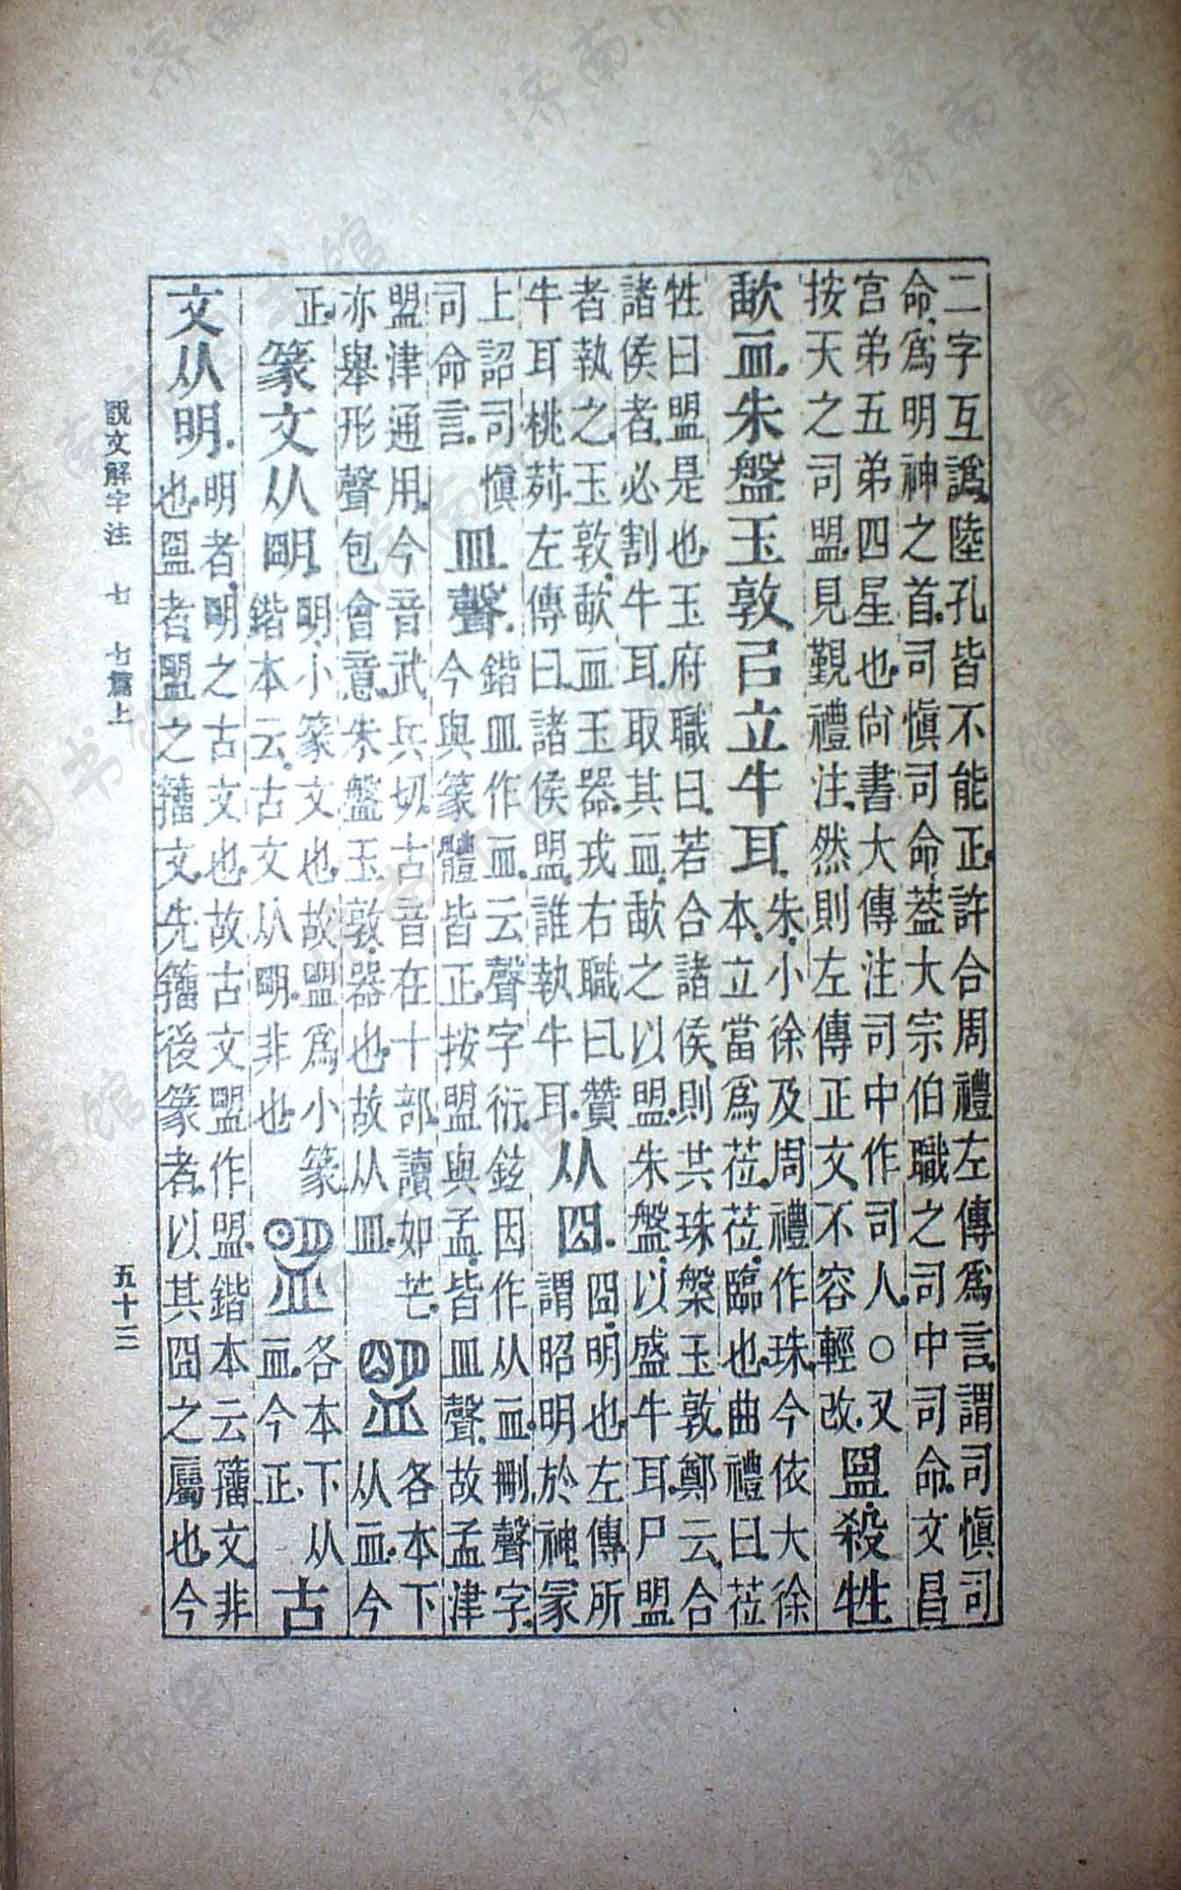 二字互譌。陸孔皆不能正。許合周禮左傳爲言。謂司愼司
命、爲明神之首。司愼司命、葢大宗伯職之司中司命。文昌
宮弟五弟四星也。尙書大傳注司中作司人。○又
按天之司盟見覲禮注。然則左傳正文不容輕改。
𥁰殺牲
歃血。朱盤玉敦。㠯立牛耳。
朱。小徐及周禮作珠。今依大徐
本。立當爲莅。莅、臨也。曲禮曰。莅
牲曰盟是也。玉府職曰。若合諸侯。則共珠槃玉敦。鄭云。合
諸侯者。必割牛耳。取其血歃之以盟。朱盤。以盛牛耳。尸盟
者執之。玉敦。歃血玉器。戎右職曰。贊
牛耳桃茢。左傳曰。諸侯盟。誰執牛耳。
从囧。
囧。明也。左傳所
謂昭明於神。冡
上詔司愼
司命言。
皿聲。
鍇皿作血。云聲字衍。鉉因作从血。刪聲字。
今與篆體皆正。按盟與孟。皆皿聲。故孟津
盟津通用。今音武兵切。古音在十部。讀如芒。
亦舉形聲包會意。朱盤玉敦。器也。故从皿。
𥂗
各本下
从血。今
正。
篆文从朙。
朙、小篆文也。故𥂗爲小篆
鍇本云。古文从朙。非也。
盟
各本下从
血。今正。
古
文从明。
明者。朙之古文也。故古文𥂗作盟。鍇本云籒文。非
也。𥁰者𥂗之籒文。先籒後篆者。以其囧之屬也。今
說文解字注 七 七篇上 五十三